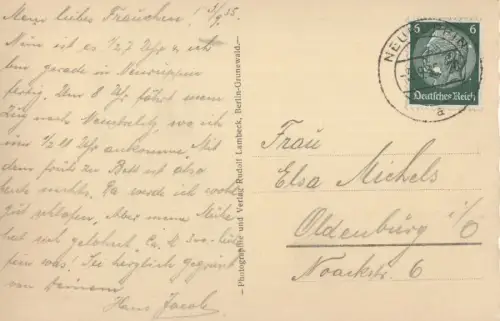 Mein liebes Frauchen! 3/9 35.
Nun ist es 1/2 7 Uhr u. ich
bin gerade in Neuruppin
fertig. Um 8 Uhr fährt mein
Zug nach Neustrelitz, wo ich
um 1/2 11 Uhr ankomme. Mit
dem früh zu Bett ist also
heute nichts. Da werde ich wohl
gut schlafen. Aber meine Mühe
hat sich gelohnt. Ca.
was! Sei herzlich gegrüßt
von Deinem
Hans Jacob
- Photographie und Verlag Rudolf Lambeck, Berlin-Grunewald. -
6 6
Deutsches Reich
NEU
a
Frau
Elsa Michels
Oldenburg i/O
Noackstr. 6